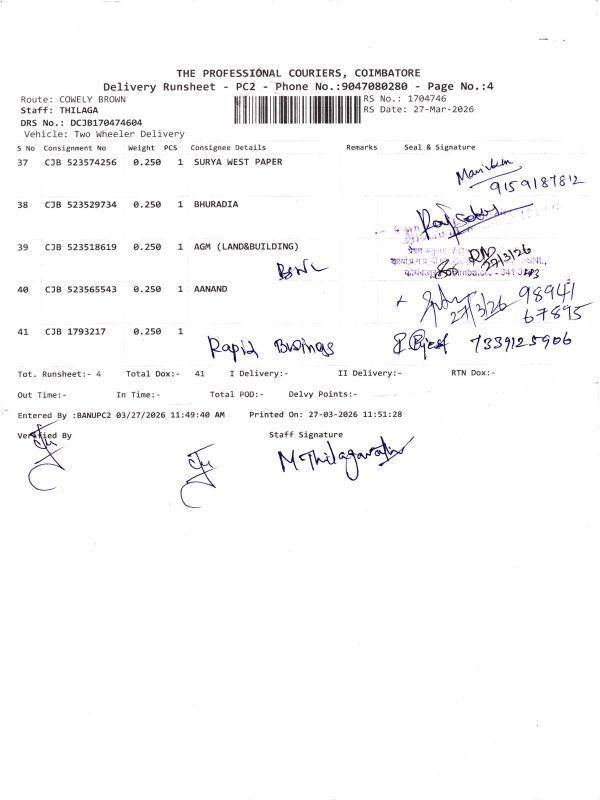 THE PROFESSIONAL COURIERS, COIMBATORE
Delivery Runsheet - PC2 - Phone No.:9047080280 - Page No.:4
Route: COWELY BROWN RS No.: 1704746
Staff: THILAGA RS Date: 27-Mar-2026
DRS No.: DCJB170474604
Vehicle: Two Wheeler Delivery
S No Consignment No Weight PCS Consignee Details Remarks Seal & Signature
37 CJB 523574256 0.250 1 SURYA WEST PAPER
9159187812
38 CJB 523529734 0.250 1 BHURADIA
39 CJB 523518619 0.250 1 AGM (LAND&BUILDING)
BSNL 27/3/26
40 CJB 523565543 0.250 1 AANAND
27/3/26 98941
67895
41 CJB 1793217 0.250 1
Rapid 7339125906
Tot. Runsheet:- 4 Total Dox:- 41 I Delivery:- II Delivery:- RTN Dox:-
Out Time:- In Time:- Total POD:- Delvy Points:-
Entered By :BANUPC2 03/27/2026 11:49:40 AM Printed On: 27-03-2026 11:51:28
Verified By Staff Signature
M Thilagavathi